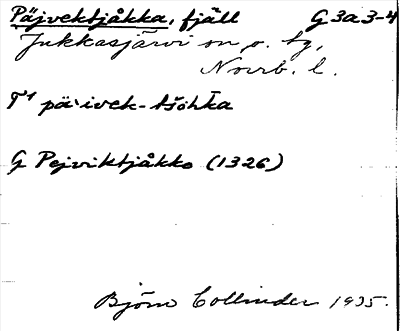 Päjvektjåkka, fjäll G 3a 3-4
Jukkasjärvi sn o. tg,
Norrb. l.
T¹ pä·ivek-tšohka
G Pejviktjåkko (1326)
Björn Collinder 1935.